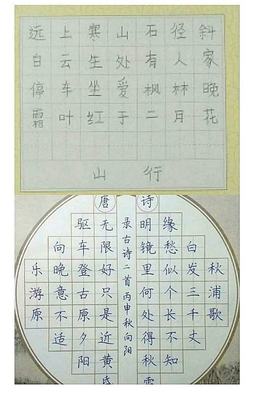 远上寒山石径斜
白云生处有人家
停车坐爱枫林晚
霜叶红于二月花
山行
唐诗
秋浦歌
白发三千丈
缘愁似个长不知
明镜里何处得秋
录古诗二首丙申秋向阳
无限好只是近黄昏
驱车登古原夕阳
向晚意不适
乐游原